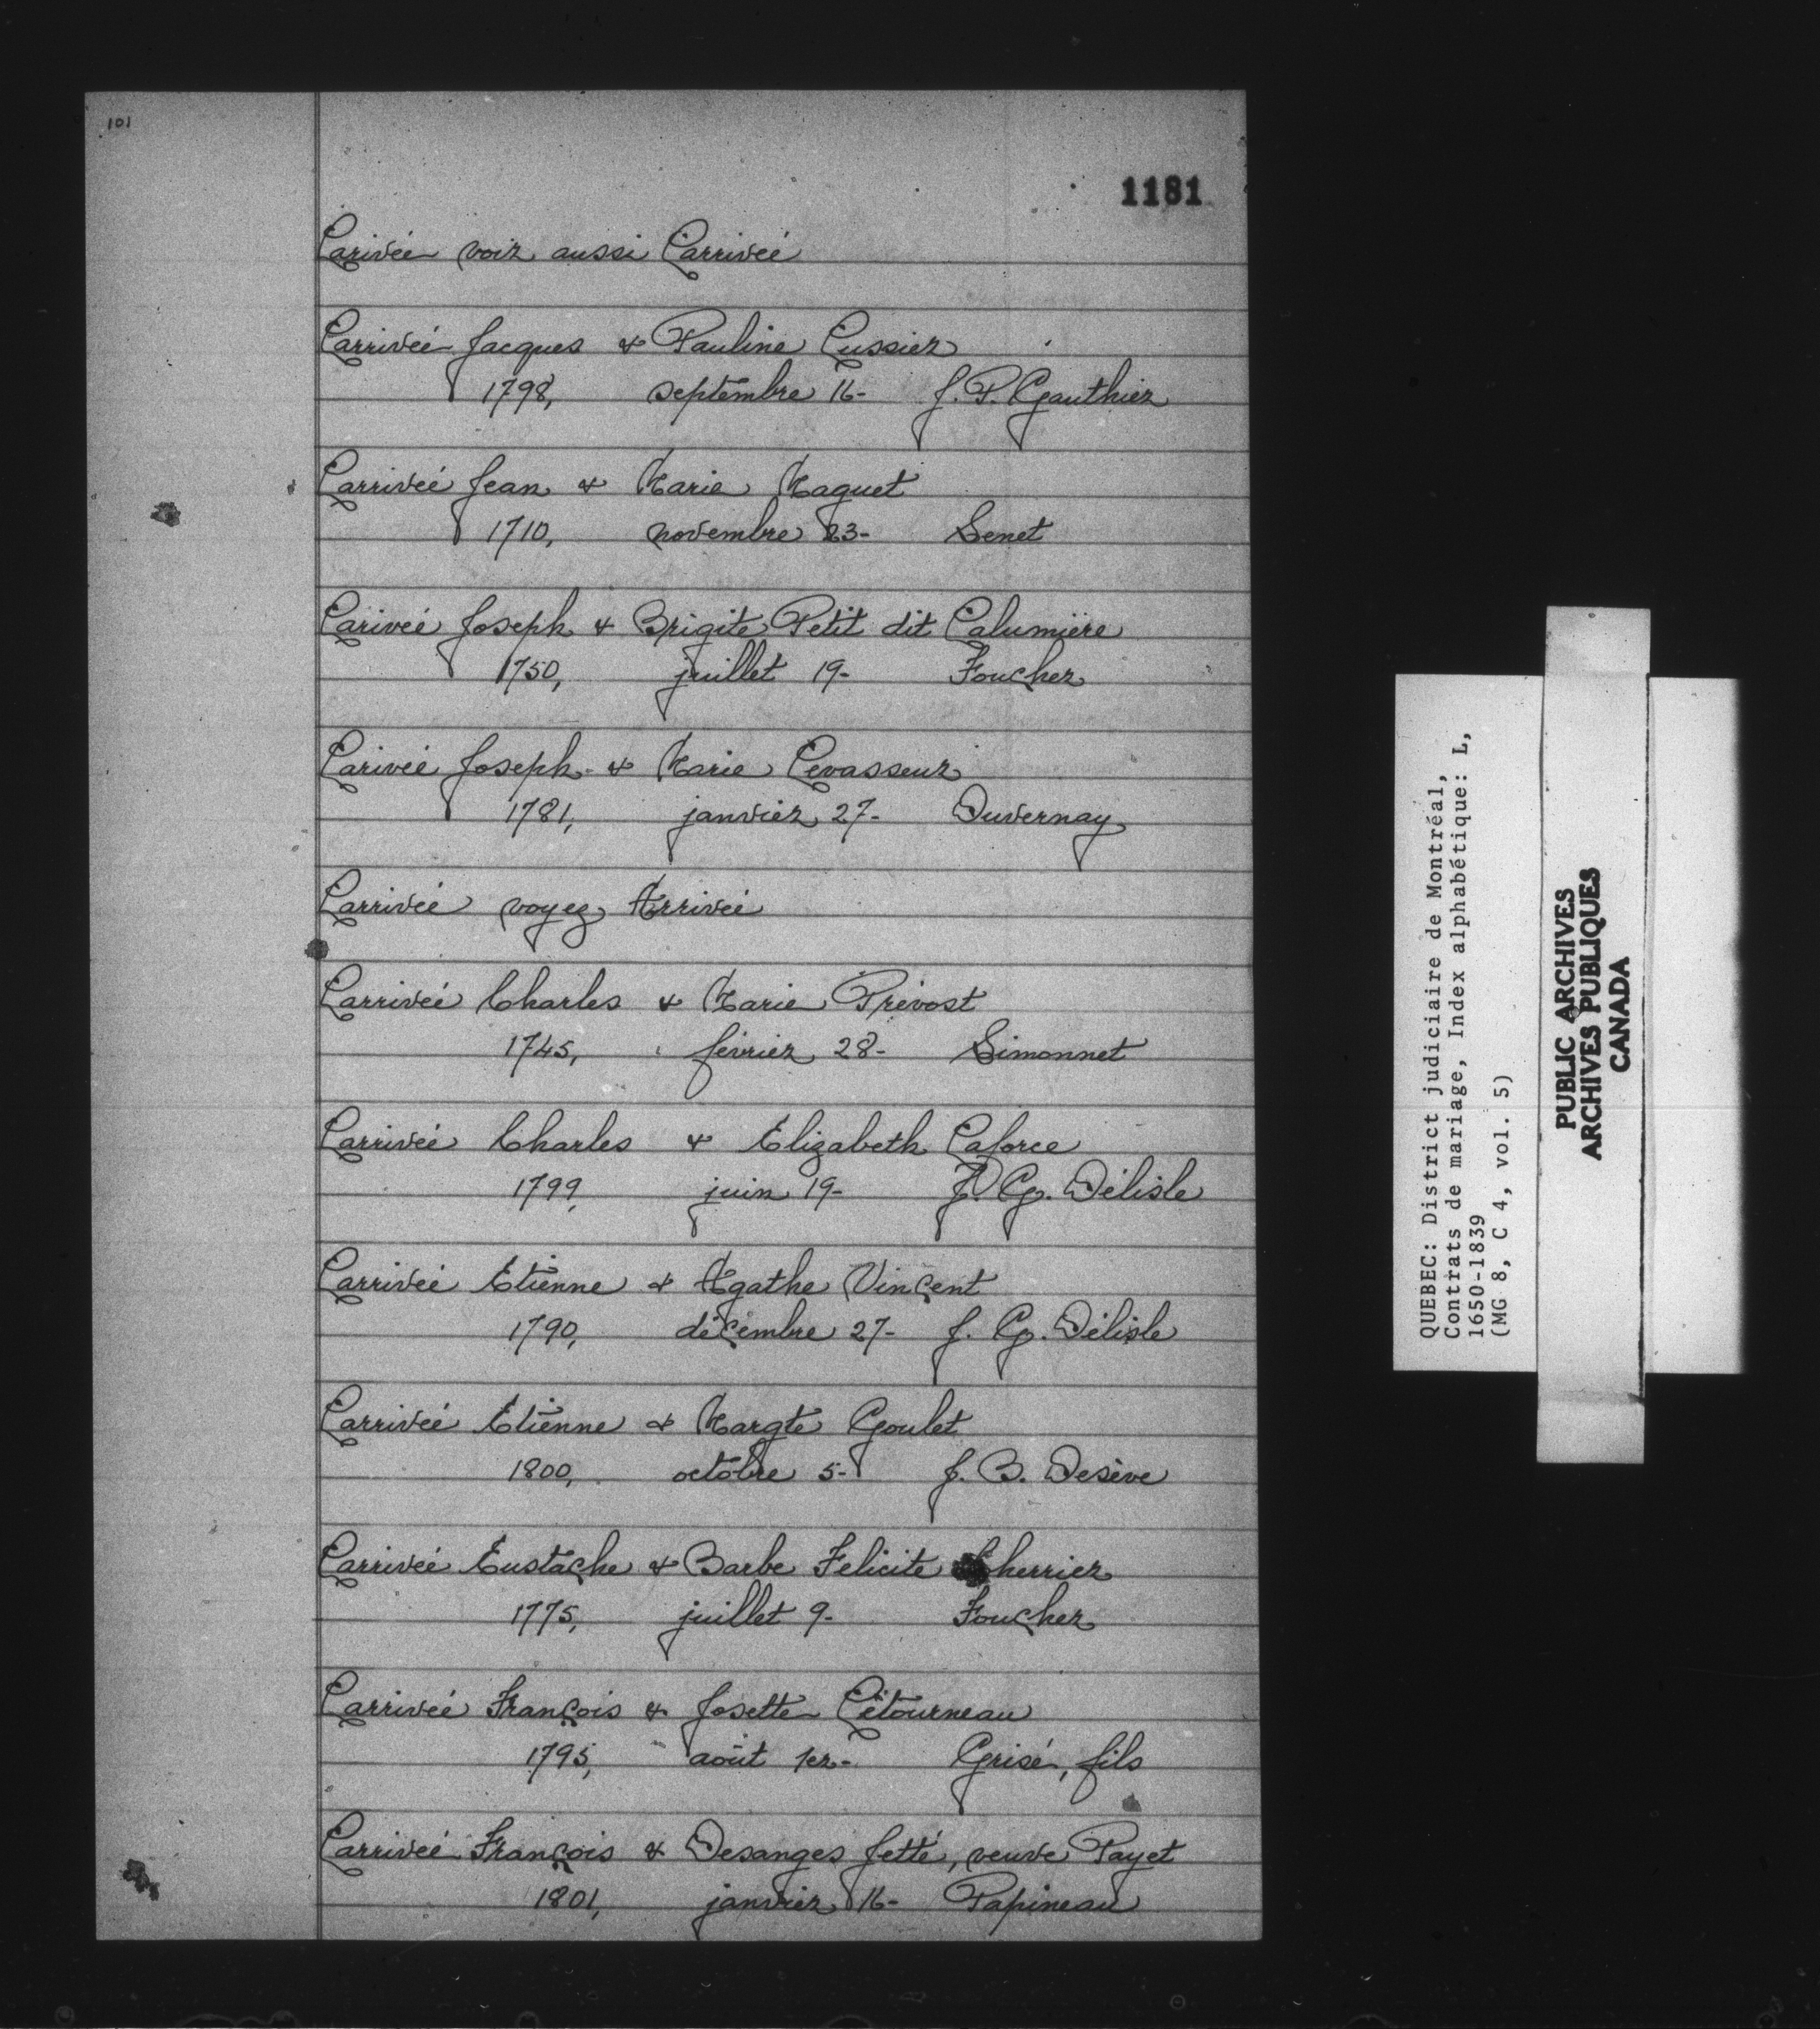 101
1181
Larivée voir aussi Larrivée
Larrivée Jacques & Pauline Lussier
1798, septembre 16- J. P. Gauthier
Larrivée Jean & Marie Maguet
1710, novembre 23- Senet
Larivée Joseph & Brigite Petit dit Lalumière
1750, juillet 19- Foucher
Larivée Joseph & Marie Levasseur
1781, janvier 27- Duvernay
Larrivée voyez Arrivée
Larrivée Charles & Marie Prévost
1745, février 28- Simonnet
Larrivée Charles & Elizabeth Laforce
1799, juin 19- J. G. Délisle
Larrivée Etienne & Agathe Vincent
1790, décembre 27- J. G. Délisle
Larrivée Etienne & Margte Goulet
1800, octobre 5- J. B. Desève
Larrivée Eustache & Barbe Felicite Cherrier
1775, juillet 9- Foucher
Larrivée François & Josette Létourneau
1795, août 1er- Grisé, fils
Larrivée François & Desanges Jetté, veuve Payet
1801, janvier 16- Papineau
QUEBEC: District judiciaire de Montréal,
Contrats de mariage, Index alphabétique: L,
1650-1839
(MG 8, C 4, vol. 5)
PUBLIC ARCHIVES
ARCHIVES PUBLIQUES
CANADA